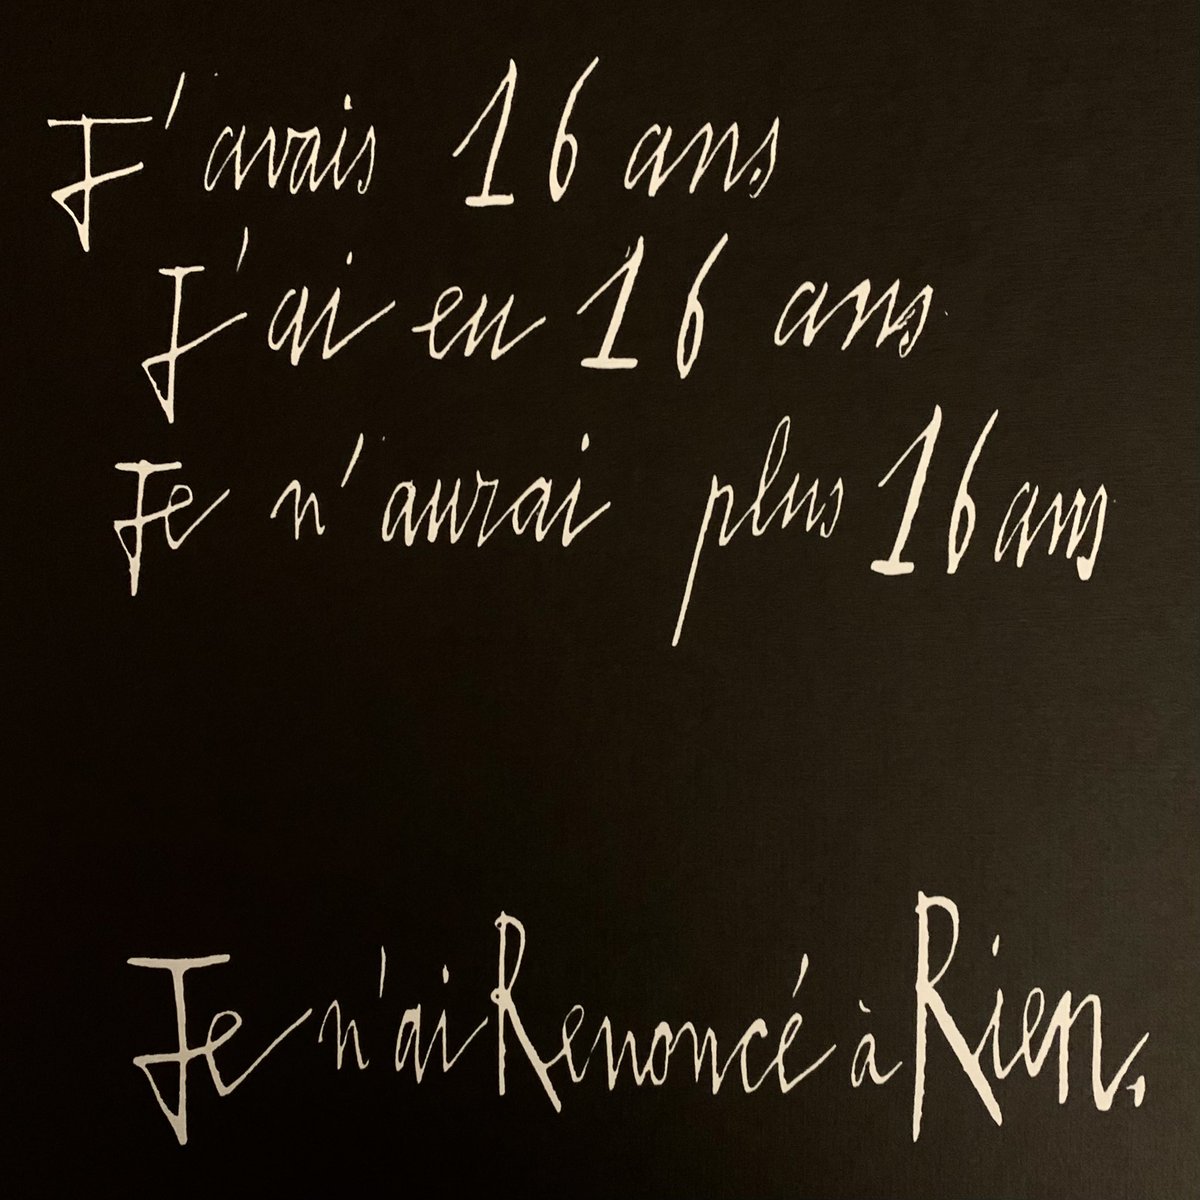 J'avais 16 ans
J'ai eu 16 ans
Je n'aurai plus 16 ans
Je n'ai Renoncé à Rien.